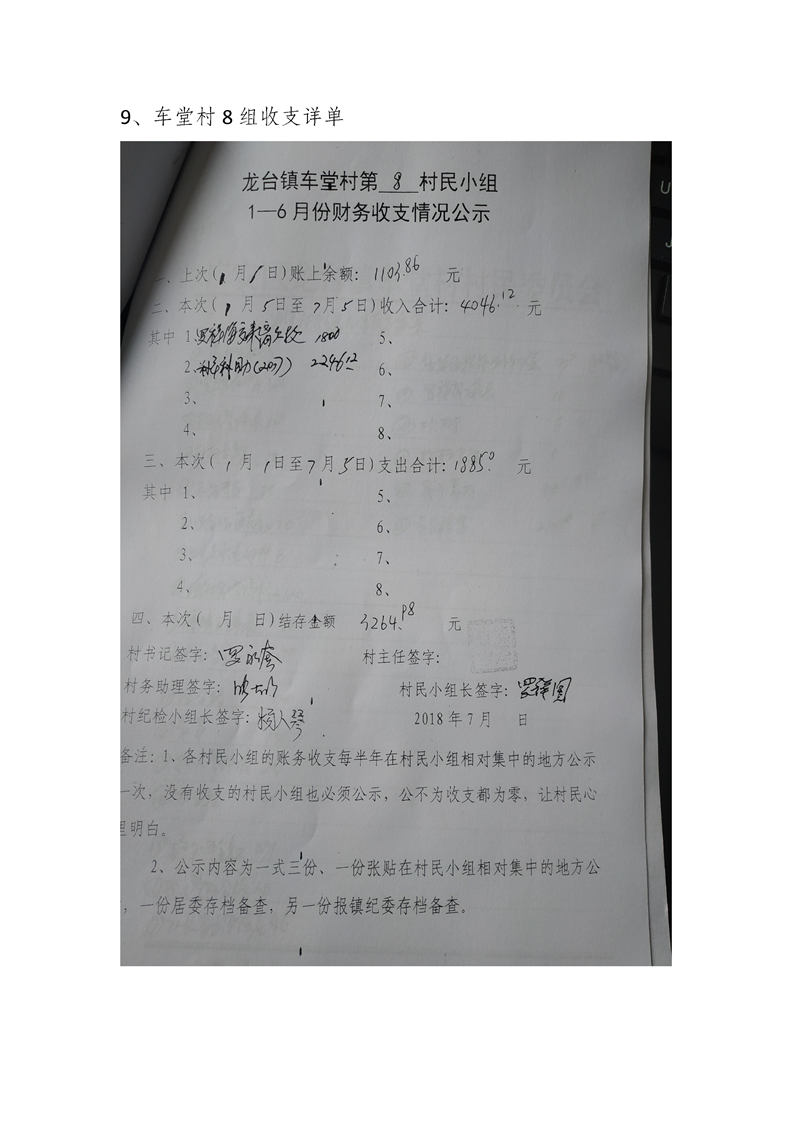 9、车堂村 8 组收支详单
龙台镇车堂村第 8 村民小组
1—6 月份财务收支情况公示
一、上次(1 月 1 日)账上余额：1103.86 元
二、本次(1 月 5 日至 7 月 5 日)收入合计：4046.12 元
其中 1、 1800 5、
2、 (2017) 2246.12 6、
3、 7、
4、 8、
三、本次(1 月 1 日至 7 月 5 日)支出合计：1885.0 元
其中 1、 5、
2、 6、
3、 7、
4、 8、
四、本次( 月 日)结存金额 3264.98 元
村书记签字： 村主任签字：
村务助理签字： 村民小组长签字：
村纪检小组长签字： 2018 年 7 月 日
备注：1、各村民小组的账务收支每半年在村民小组相对集中的地方公示
一次，没有收支的村民小组也必须公示，公不为收支都为零，让村民心
里明白。
2、公示内容为一式三份、一份张贴在村民小组相对集中的地方公
，一份居委存档备查，另一份报镇纪委存档备查。